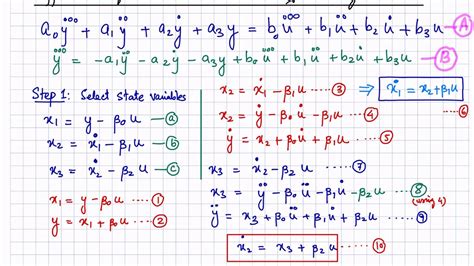 a₀y⃛ + a₁ÿ + a₂ẏ + a₃y = b₀u⃛ + b₁ü + b₂u̇ + b₃u → A
y⃛ = -a₁ÿ - a₂ẏ - a₃y + b₀u⃛ + b₁ü + b₂u̇ + b₃u B
Step 1: Select state variables
x₁ = y - β₀u — a
x₂ = ẋ₁ - β₁u — b
x₃ = ẋ₂ - β₂u — c
x₁ = y - β₀u ..... 1
y = x₁ + β₀u ..... 2
x₂ = ẋ₁ - β₁u ..... 3 ⇒ ẋ₁ = x₂ + β₁u
6
x₂ = ẏ - β₀u̇ - β₁u ..... 4
ẏ = x₂ + β₀u̇ + β₁u ..... 5
x₃ = ẋ₂ - β₂u ..... 7
x₃ = ÿ - β₀ü - β₁u̇ - β₂u ..... 8
(using 4)
ÿ = x₃ + β₀ü + β₁u̇ + β₂u ..... 9
ẋ₂ = x₃ + β₂u ..... 10